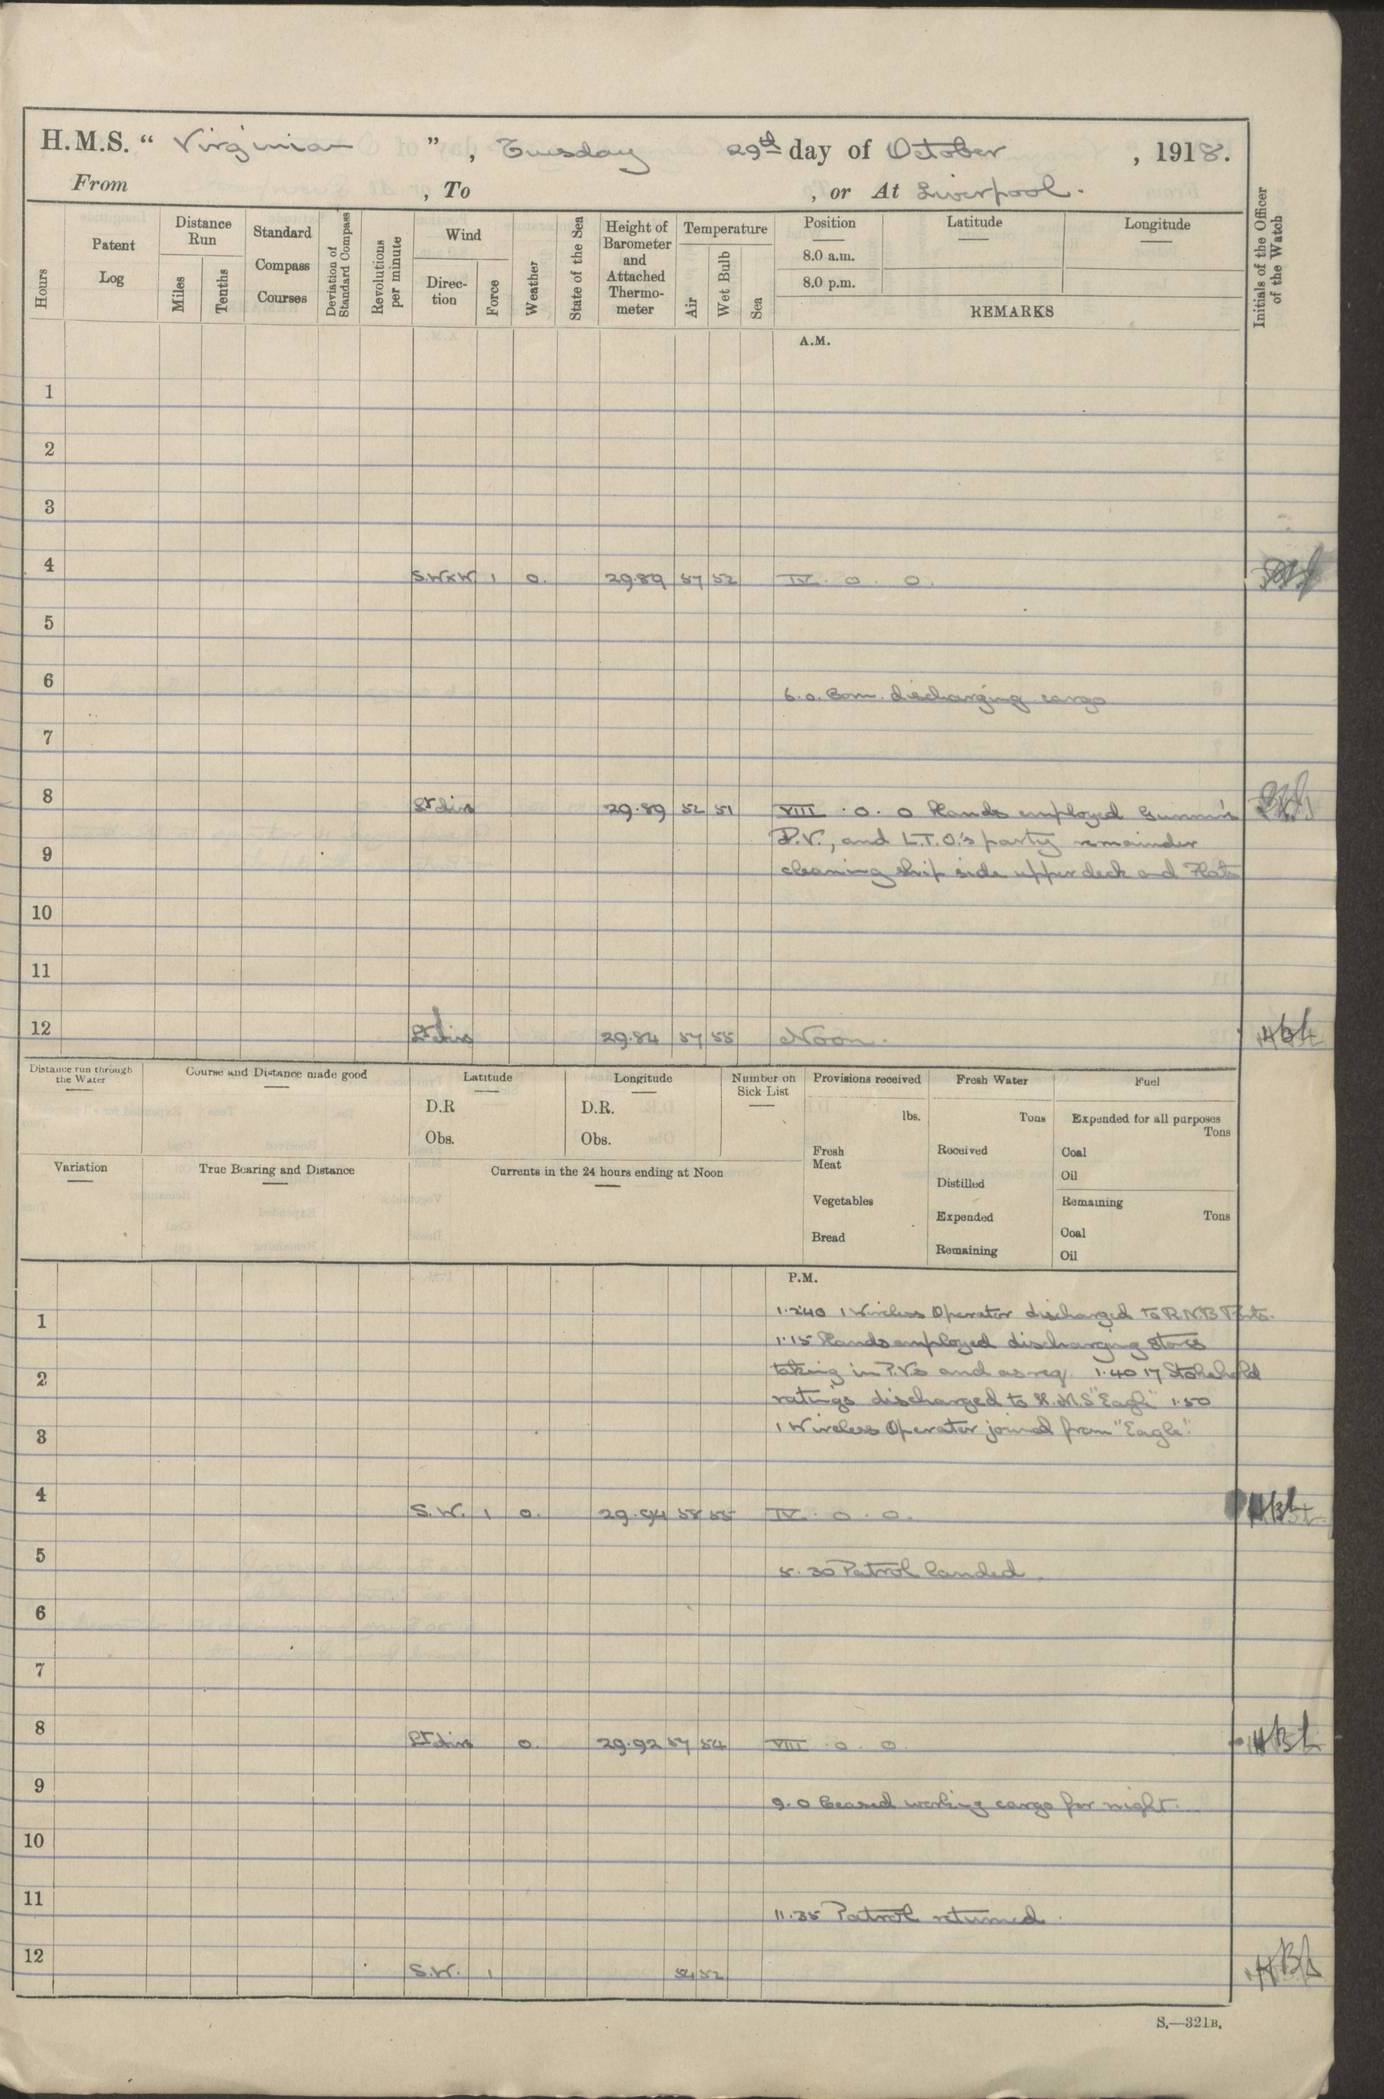 H.M.S. “ Virginian ” , Tuesday 29th day of October , 1918.
From , To , or At Liverpool.
Hours
Patent Log
Distance Run
Miles
Tenths
Standard Compass Courses
Deviation of Standard Compass
Revolutions per minute
Wind
Direction
Force
Weather
State of the Sea
Height of Barometer and Attached Thermometer
Temperature
Air
Wet Bulb
Sea
Position
8.0 a.m.
8.0 p.m.
Latitude
Longitude
REMARKS
Initials of the Officer of the Watch
A.M.
1
2
3
4 S.W×W 1 o. 29.89 57 52 IV. 0. 0.
5
6 6.0. Com. discharging cargo
7
8 29.89 52 51 VIII. 0. 0 Hands employed
P.V., and L.T.O.'s party remainder
9 cleaning ship side upper deck and Flats
10
11
12 29.84 57 55 Noon.
Distance run through the Water
Course and Distance made good
Latitude
D.R
Obs.
Longitude
D.R.
Obs.
Number on Sick List
Provisions received
lbs.
Fresh Meat
Vegetables
Bread
Fresh Water
Tons
Received
Distilled
Expended
Remaining
Fuel
Expended for all purposes
Tons
Coal
Oil
Remaining
Tons
Coal
Oil
Variation
True Bearing and Distance
Currents in the 24 hours ending at Noon
P.M.
1 1 Wireless Operator discharged to R.N.B
1.15 Hands employed discharging stores
2 taking in P.Vs and as req. 1.40 17 Stokehold
ratings discharged to H.M.S "Eagle" 1.50
3 1 Wireless Operator joined from "Eagle".
4 S.W. 1 o. 29.94 58 55 IV. 0. 0.
5 5.30 Patrol landed.
6
7
8 o. 29.92 57 54 VIII. 0. 0.
9 9.0 Ceased working cargo for night.
10
11 11.35 Patrol returned.
12 S.W. 1 52
S.—321B.